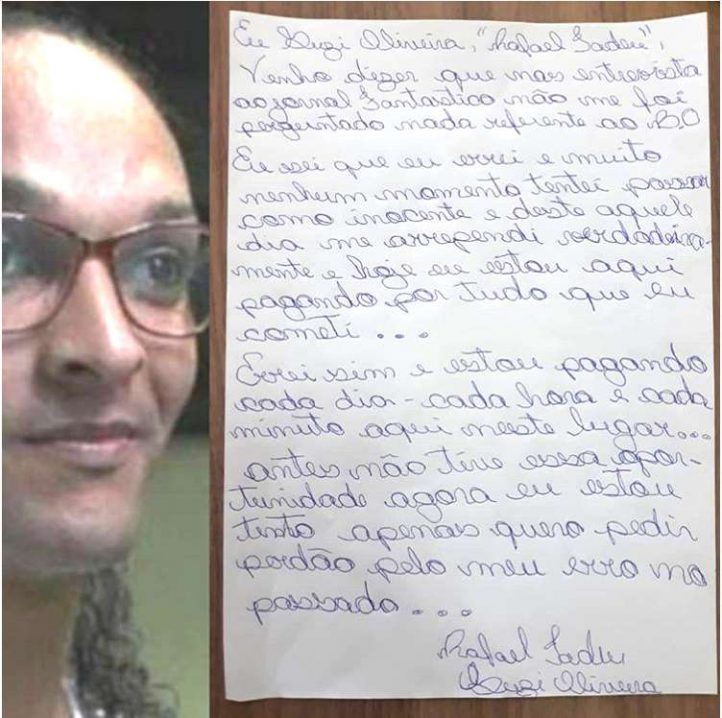 Eu Suzi Oliveira, "Rafael Tadeu",
Venho dizer que mas entrevista
ao jornal Fantastico não me foi
perguntado nada referente ao B.O
Eu sei que eu errei e muito
nenhum momento tentei passar
como inocente e deste aquele
dia me arrependi verdadeira-
mente e hoje eu estou aqui
pagando por tudo que eu
cometi ...
Errei sim e estou pagando
cada dia - cada hora e cada
minuto aqui neste lugar...
antes não tive essa opor-
tunidade agora eu estou
tinto apenas quero pedir
perdão pelo meu erro no
passado ...
Rafael Tadeu
Suzi Oliveira